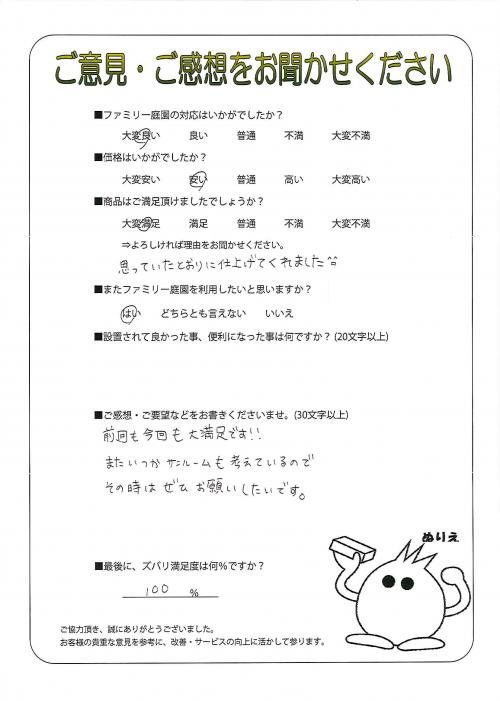 ご意見・ご感想をお聞かせください
■ファミリー庭園の対応はいかがでしたか？
大変良い 良い 普通 不満 大変不満
■価格はいかがでしたか？
大変安い 安い 普通 高い 大変高い
■商品はご満足頂けましたでしょうか？
大変満足 満足 普通 不満 大変不満
⇒よろしければ理由をお聞かせください。
思っていたとおりに仕上げてくれました^^
■またファミリー庭園を利用したいと思いますか？
はい どちらとも言えない いいえ
■設置されて良かった事、便利になった事は何ですか？(20文字以上)
■ご感想・ご要望などをお書きくださいませ。(30文字以上)
前回も今回も大満足です!!
またいつかサンルームも考えているので
その時はぜひお願いしたいです。
ぬりえ
■最後に、ズバリ満足度は何%ですか？
100 %
ご協力頂き、誠にありがとうございました。
お客様の貴重な意見を参考に、改善・サービスの向上に活かして参ります。